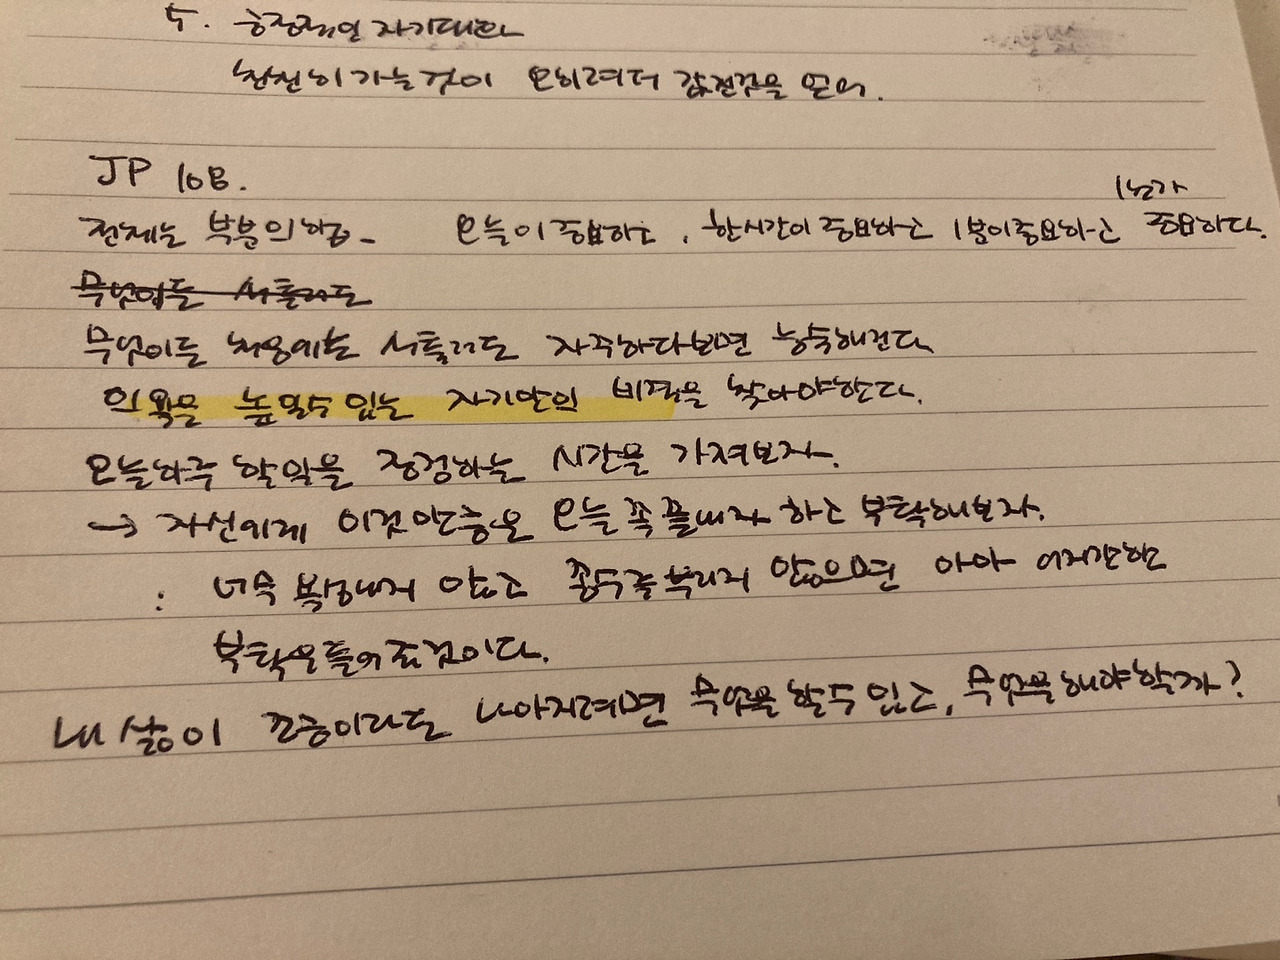 5. 긍정적인 자기대화
천천히 가는것이 오히려 더 값진것을 얻어.
JP 10B.
전체는 부분의 합. 오늘이 중요하고, 한시간이 중요하고 1분이 중요하고 1초가 중요하다.
무엇이든 서툴러도
무엇이든 처음에는 서툴러도 자주하다보면 능숙해진다
의욕을 높일수 있는 자기만의 비결을 찾아야한다.
오늘하루 할일을 점검하는 시간을 가져보자.
→ 자신에게 이것만큼은 오늘 꼭 끝내자 하고 부탁해보자.
: 너무 벅차지 않고 중수를 부리지 않으면 아마 어지간한
부탁은 들어줄것이다.
내 삶이 조금이라도 나아지려면 무엇을 할수 있고, 무엇을 해야할까?